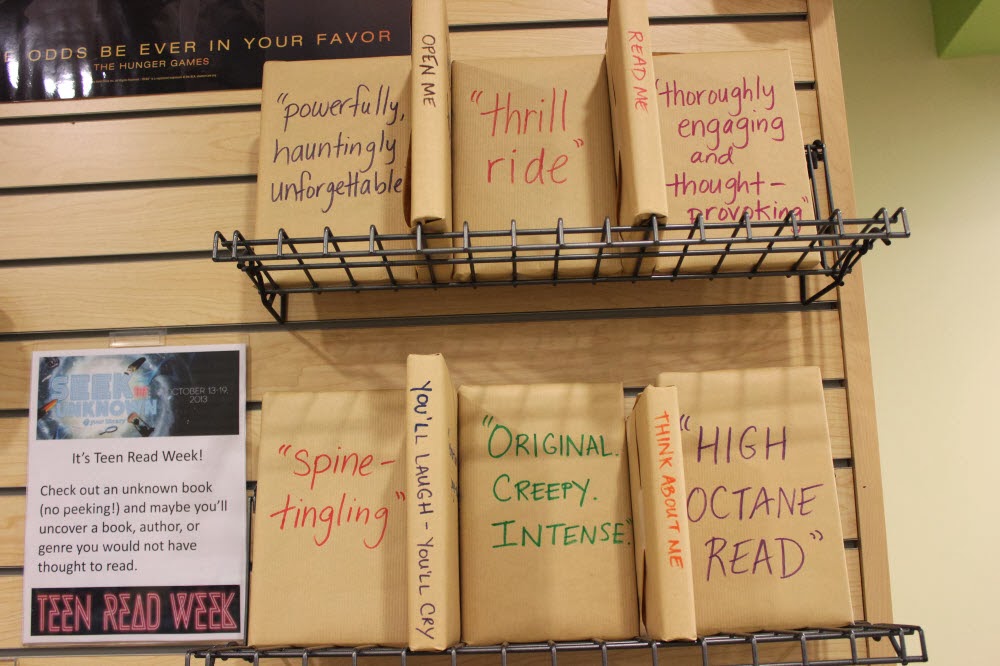 ODDS BE EVER IN YOUR FAVOR
THE HUNGER GAMES
"powerfully,
hauntingly
unforgettable
OPEN ME
"thrill
ride"
READ ME
"thoroughly
engaging
and
thought-
provoking"
SEEK THE
UNKNOWN
@ your library
OCTOBER 13-19,
2013
It's Teen Read Week!
Check out an unknown book
(no peeking!) and maybe you'll
uncover a book, author, or
genre you would not have
thought to read.
TEEN READ WEEK
"Spine-
tingling"
YOU'LL LAUGH - YOU'LL CRY
"ORIGINAL.
CREEPY.
INTENSE."
THINK ABOUT ME
"HIGH
OCTANE
READ"